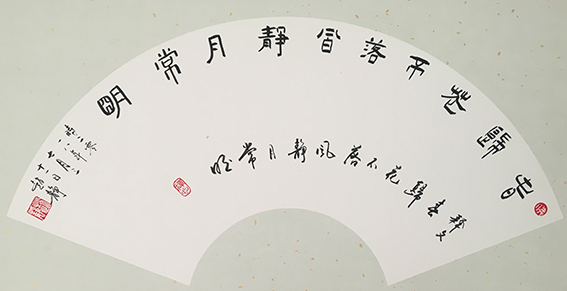 春歸花不落風靜月常明
釋文
春歸花不落風靜月常明